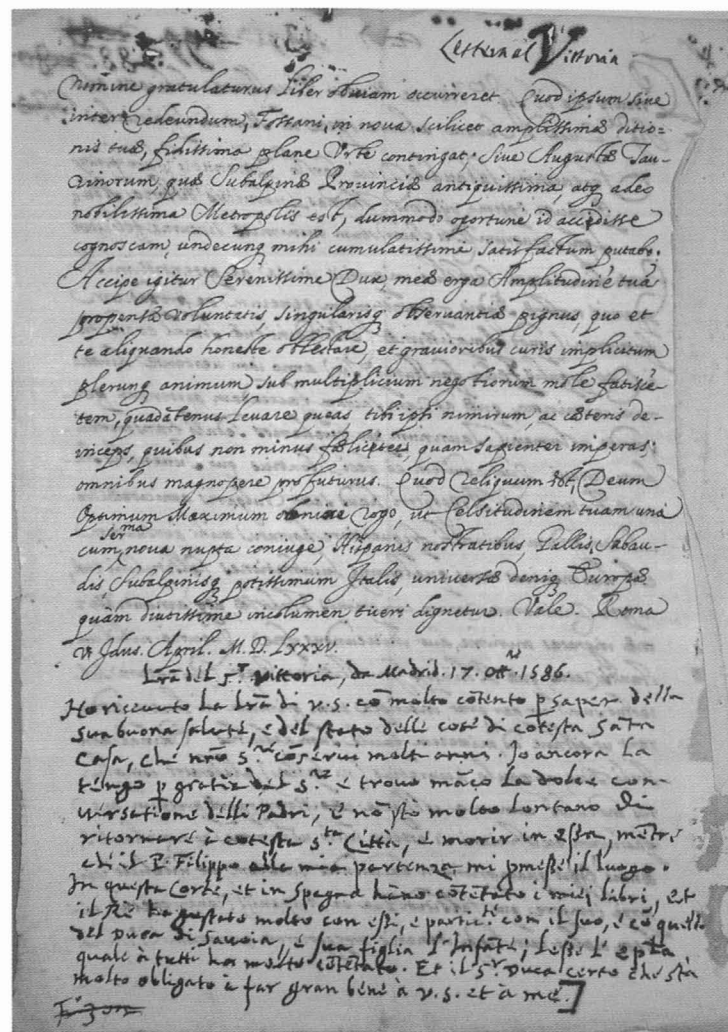 Vittoria
nomine gratulaturus liber obviam occurreret. Quod ipsum sive
inter redeundum, Fossani, in nova scilicet amplissimæ ditio-
nis tuæ, fidissima plane Urbe contingat; sive Augustæ Tau-
rinorum, quæ Subalpinæ Provinciæ antiquissima, atq adeo
nobilissima Metropolis est, dummodo oportune id accidisse
cognoscam, undecunq mihi cumulatissime satisfactum putabo.
Accipe igitur Serenissime Dux, meæ erga Amplitudinē tuā
propensæ voluntatis, singularisq observantiæ pignus quo et
te aliquando honeste oblectare, et gravioribus curis implicitum
plerunq animum sub multiplicium negotiorum mole fatiscē-
tem, quadātenus levare queas tibi ipsi nimirum, ac cæteris de-
inceps, quibus non minus fœliciter, quam sapienter imperas
omnibus magnopere profuturus. Quod reliquum est, Deum
Optimum Maximum obnixe rogo, ut Celsitudinem tuam una
cum Ser.ma nova nupta coniuge, Hispanis nostratibus, Gallis, Sabau-
dis, Subalpinisq potissimum Italis, universæ deniq Europæ
quam diutissime incolumen tueri dignetur. Vale. Roma
Idus. April. M. D. Lxxxv.
Lrā del S.r Vittoria, da Madrid. 17. 1586.
Ho ricevuto La Lrā di v. s. cō molto cōtento p saper della
sua buona salute, e del stato delle cose di cotesta santa
Casa, che nrō S.re cōservi molti anni. Io ancora La
tengo p gratia del S.re e trovo māco La dolce con-
versatione delli Padri, e nō sto molto Lontano di
ritornare à cotesta S.ta Città, e morir in essa, mētre
che il P. Filippo alla mia partenza mi pmesse il luogo.
In questa Corte, et in Spagna hāno cōtētato i miei Libri, et
il Rè ha gustato molto con essi, e partic.te con il suo, e cō quello
del Duca di Savoia, e sua figlia l'Infāta; Lesse l'epla,
quale à tutti ha molto cōtētato. Et il S.r Duca certo che sta
molto obligato à far gran bene à v. s. et à me.]